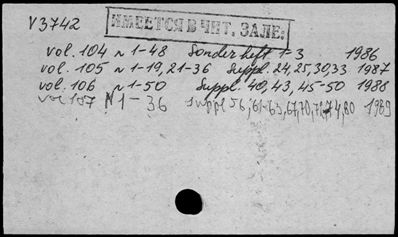 V3742
ИМЕЕТСЯ В ЧИТ. ЗАЛЕ:
vol. 104 N 1-48 Sonderheft 1-3 1986
vol. 105 N 1-19, 21-36 Suppl. 24,25,30,33 1987
vol. 106 N 1-50 Suppl. 40,43,45-50 1988
vol 107 N 1-36 suppl 56, 61-63, 67,70, 80 1989